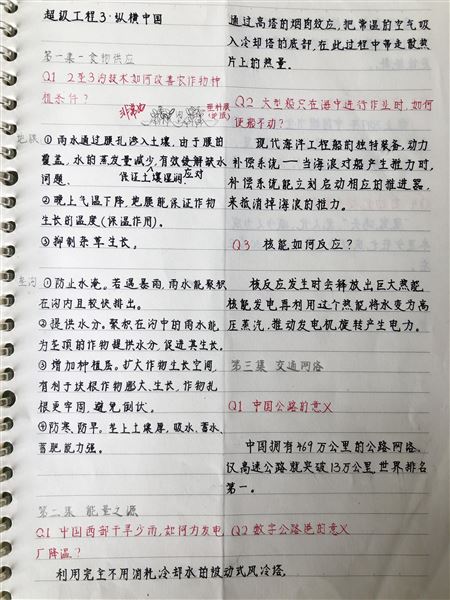 超级工程3·纵横中国
第一集－食物供应
Q1 2垄3沟技术如何改善农作物种
植条件？
垄 沟
塑料膜
(地膜)
地膜 ①雨水通过膜孔渗入土壤，由于膜的
覆盖，水的蒸发量减少，有效缓解缺水
问题，保证土壤湿润 应对
②晚上气温下降，地膜能保证作物
生长的温度(保温作用)。
③抑制杂草生长。
垄沟 ①防止水淹。若遇暴雨，雨水能聚积
在沟内且较快排出。
②提供水分。聚积在沟中的雨水能
为垄顶的作物提供水分，促进其生长。
③增加种植层。扩大作物生长空间，
有利于块根作物膨大、生长，作物扎
根更牢固，避免倒伏。
④防寒、防旱。垄上土壤厚，吸水、蓄水、
蓄肥能力强。
第二集 能量之源
Q1 中国西部干旱少雨，如何为发电
厂降温？
利用完全不用消耗冷却水的被动式风冷塔，
通过高塔的烟囱效应，把常温的空气吸
入冷却塔的底部，在此过程中带走散热
片上的热量。
Q2 大型船只在海中进行作业时，如何
使船不动？
现代海洋工程船的独特装备，动力
补偿系统——当海浪对船产生推力时，
补偿系统能立刻启动相应的推进器，
来抵消掉海浪的推力。
Q3 核能如何反应？
核反应发生时会释放出巨大热能，
核能发电再利用这个热能将水变为高
压蒸汽，推动发电机旋转产生电力。
第三集 交通网络
Q1 中国公路的意义
中国拥有469万公里的公路网络，
仅高速公路就突破13万公里，世界排名
第一。
Q2 数字公路港的意义